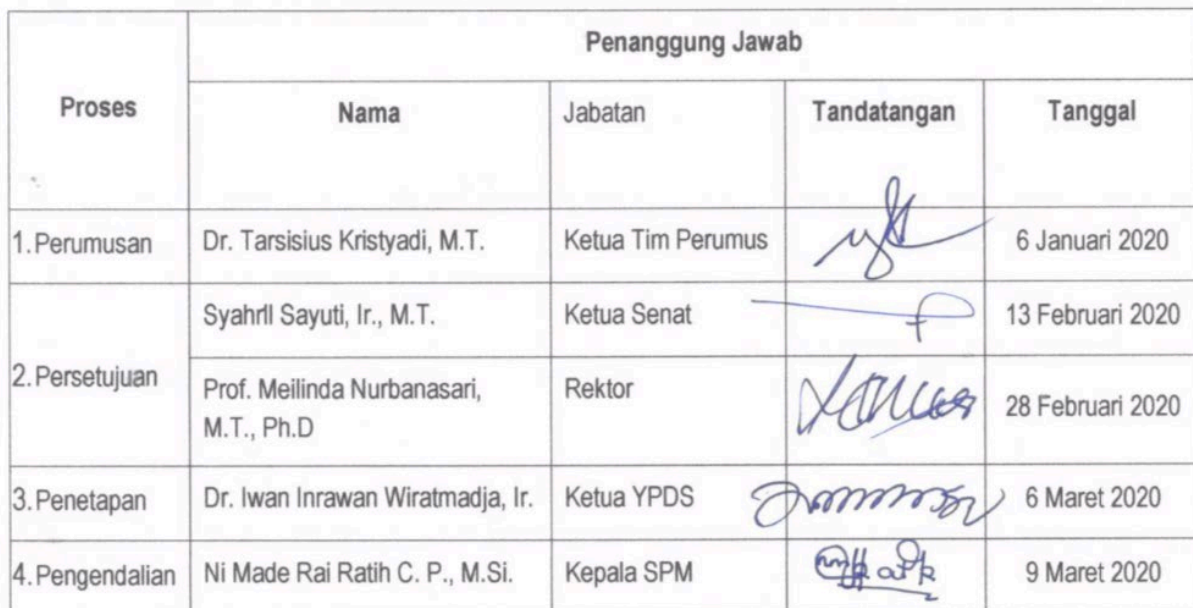 Proses
Penanggung Jawab
Nama
Jabatan
Tandatangan
Tanggal
1. Perumusan
Dr. Tarsisius Kristyadi, M.T.
Ketua Tim Perumus
6 Januari 2020
2. Persetujuan
Syahril Sayuti, Ir., M.T.
Ketua Senat
13 Februari 2020
Prof. Meilinda Nurbanasari,
M.T., Ph.D
Rektor
28 Februari 2020
3. Penetapan
Dr. Iwan Inrawan Wiratmadja, Ir.
Ketua YPDS
6 Maret 2020
4. Pengendalian
Ni Made Rai Ratih C. P., M.Si.
Kepala SPM
9 Maret 2020